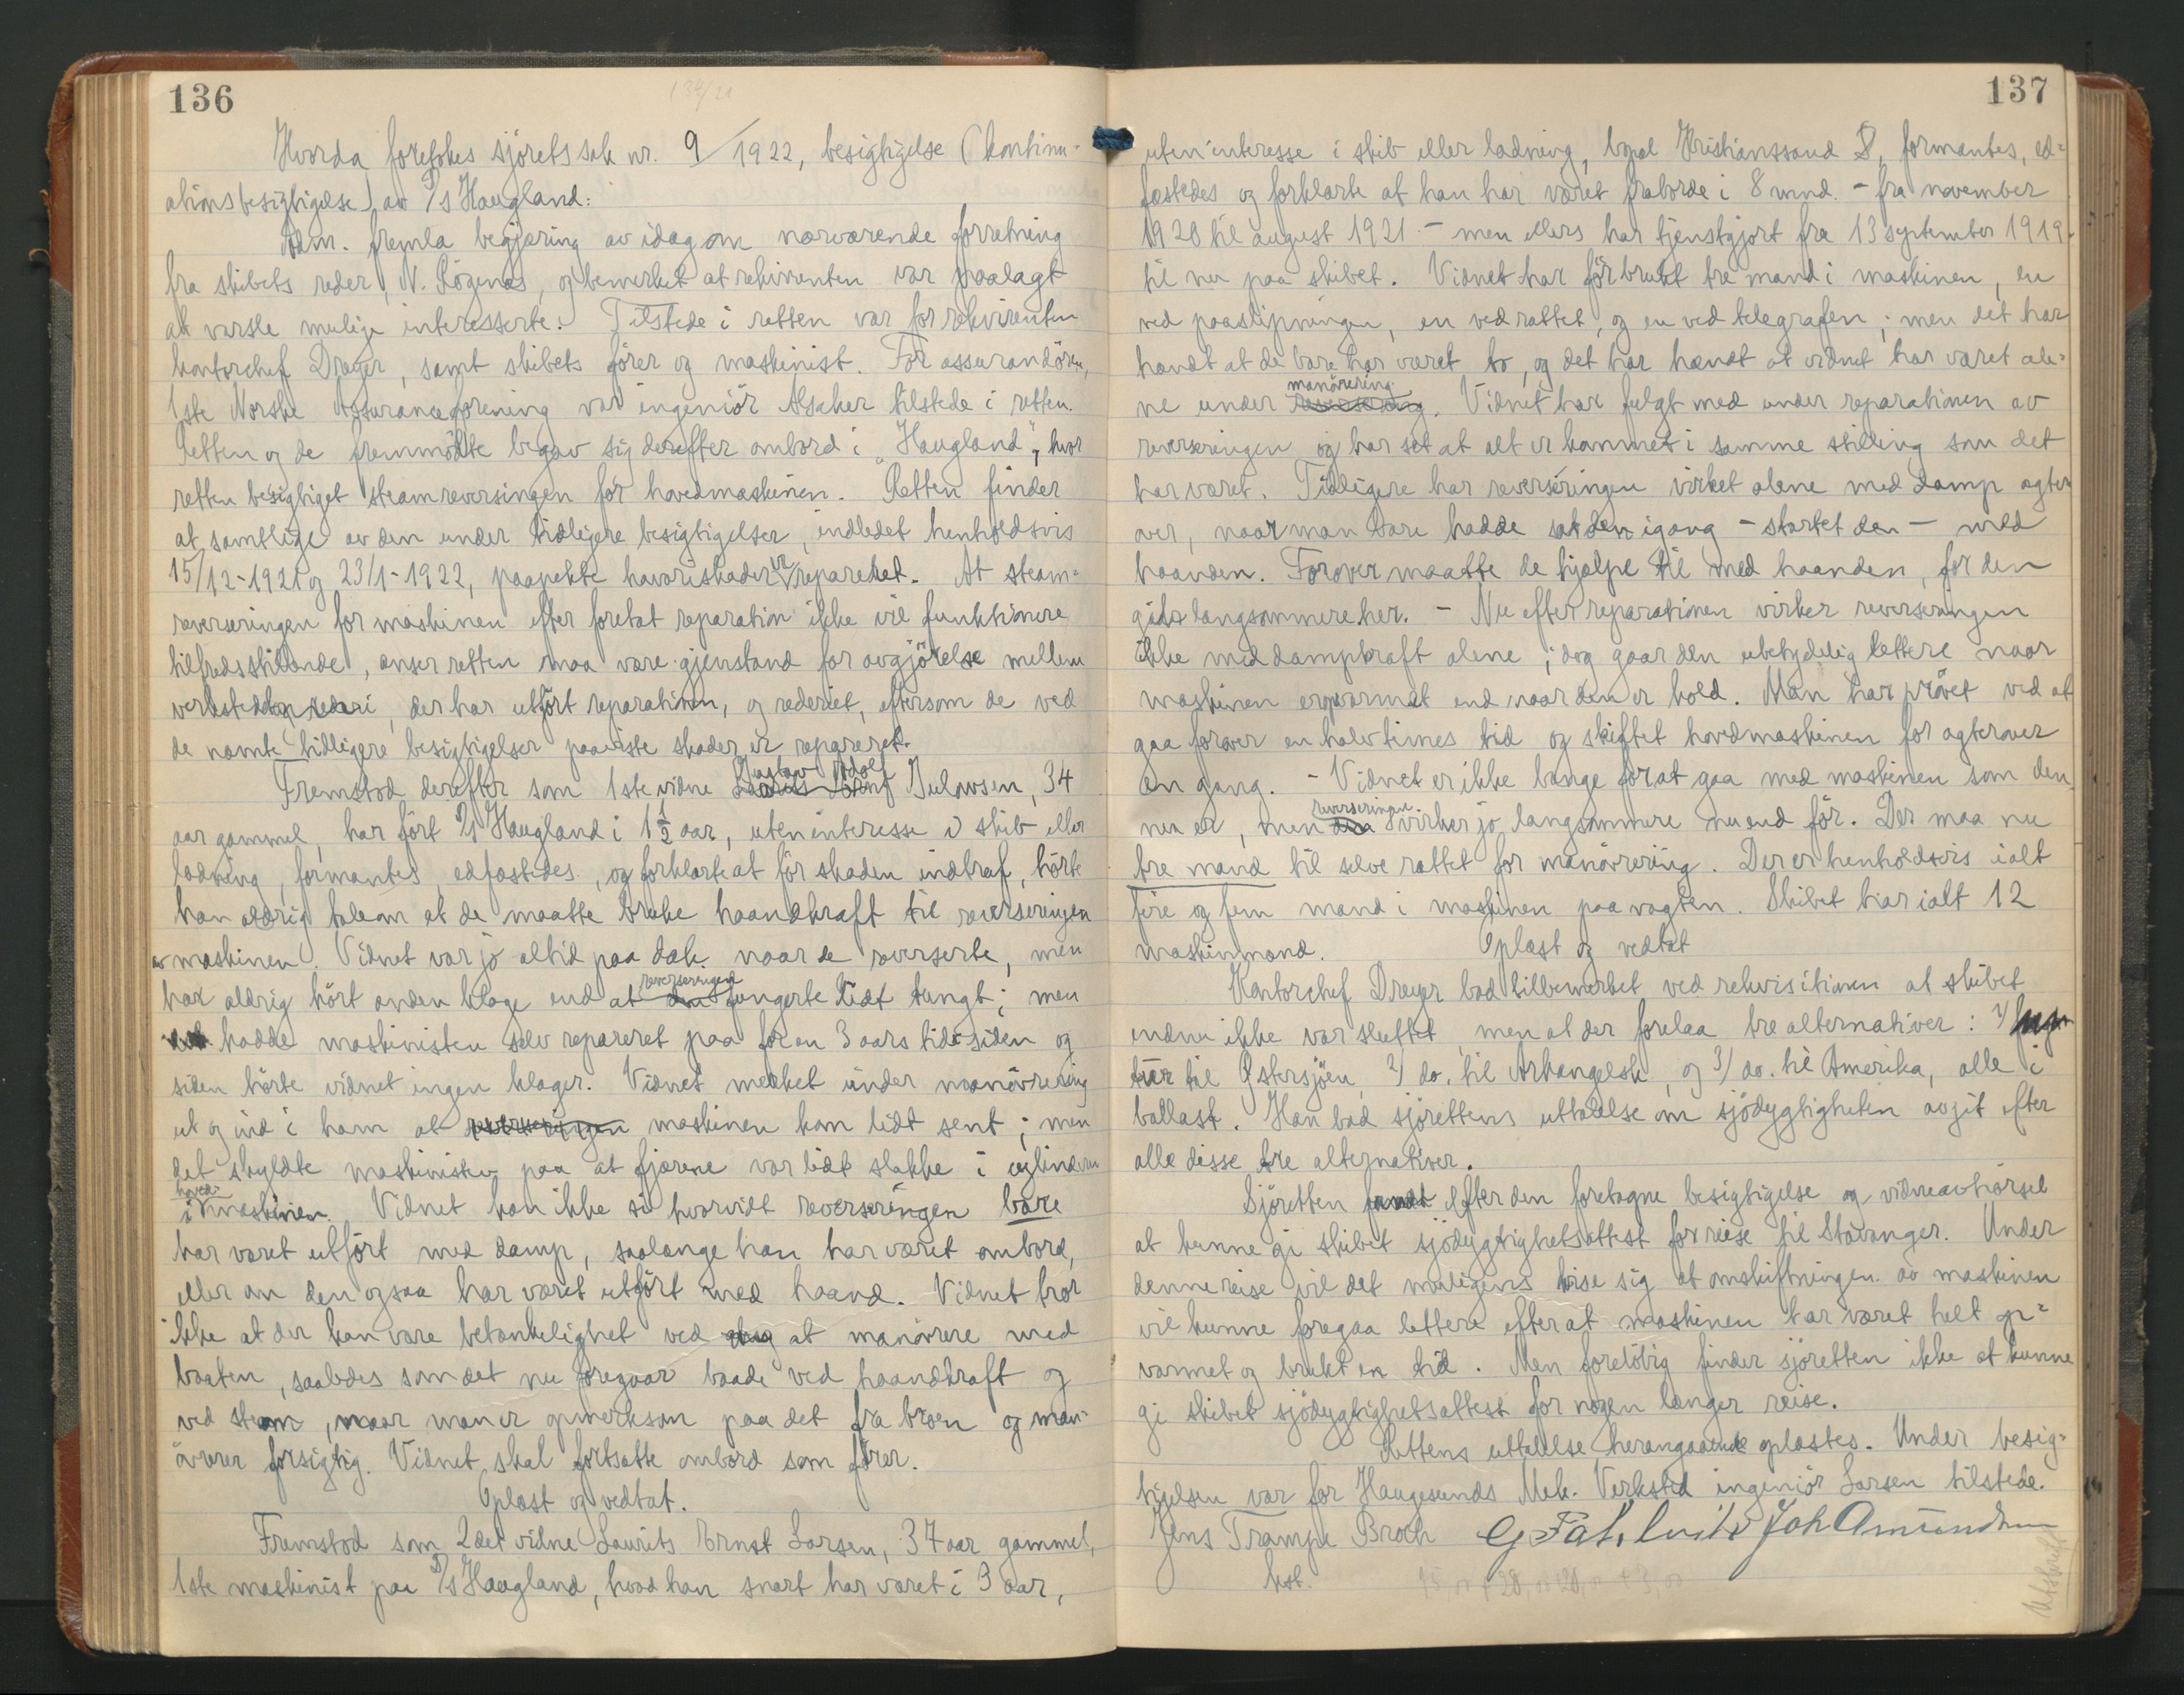 136
Hvorda foretokes sjöretssak nr. 9/1922, besigtigelse (kontinu-
ationsbesigtigelse) av D/s Haugland:
Adm. fremla begjæring av idag om nærværende forretning
fra skibets reder, N. Rögenes, og bemerket at rekvirenten var paalagt
at varsle mulige interesserte. Tilstede i retten var for rekvirenten
kontorchef Dreyer, samt skibets förer og maskinist. For assurandören,
1ste Norske Assuranceforening var ingeniör Alsaker tilstede i retten.
Retten og de fremmötte begav sig derefter ombord i "Haugland", hvor
retten besigtiget steamreversingen for hovedmaskinen. Retten finder
at samtlige av den under tidligere besigtigelser, indledet henholdsvis
15/12-1921 og 23/1-1922, paapekte havariskader er reparehet. At steam=
reverseringen for maskinen efter foretat reparation ikke vil funktionere
tilfredsstillende, anser retten maa være gjenstand for avgjörelse mellem
verkstedet, der har utfört reparationen, og rederiet, eftersom de ved
de nævnte tidligere besigtigelser paaviste skader er reparert.
Fremstod derefter som 1ste vidne Gustav Adolf Gulowsen, 34
aar gammel, har fört D/s Haugland i 1½ aar, uten interesse i skib eller
ladning, formantes, edfæstedes, og forklarte at för skaden indtraf, hörte
han aldrig tale om at de maatte bruke haandkraft til reverseringen
av maskinen. Vidnet var jo altid paa dæk naar de reverserte, men
har aldrig hört anden klage end at reverseringen fungerte lidt tungt; men
det hadde maskinisten selv reparert paa for en 3 aars tid siden og
siden hörte vidnet ingen klager. Vidnet merket under manövrering
ut og ind i havn at maskinen kom lidt sent; men
det skyldte maskinisten paa at fjærene var lidt slakke i cylinderen
i hoved-maskinen. Vidnet kan ikke si hvorvidt reverseringen bare
har været utfört med damp, saalænge han har været ombord,
eller om den ogsaa har været utfört med haand. Vidnet tror
ikke at der kan være betænkelighet ved at manövrere med
baaten, saaledes som det nu foregaar baade ved haandkraft og
ved steam, naar man er opmerksom paa det fra broen og man-
övrerer forsigtig. Vidnet skal fortsætte ombord som förer.
Oplæst og vedtat.
Fremstod som 2det vidne Laurits Ernst Larsen, 37 aar gammel,
1ste maskinist paa D/s Haugland, hvad han snart har været i 3 aar,
137
uten interesse i skib eller ladning, bopæl Kristianssand S, formantes, ed=
fæstedes og forklarte at han har været fraborde i 8 mnd. - fra november
1920 til august 1921 - men ellers har tjenstgjort fra 13 september 1919
til nu paa skibet. Vidnet har för brukt tre mand i maskinen, en
ved paaslipningen, en ved rattet, og en ved telegrafen; men det har
hændt at de bare har været to, og det har hændt at vidnet har været ale=
ne under manövrering. Vidnet har fulgt med under reparationen av
reverseringen og har set at alt er kommet i samme stilling som det
har været. Tidligere har reverseringen virket alene med damp agter
over, naar man bare hadde sat den igang - startet den - med
haanden. Forover maatte de hjælpe til med haanden, for den
gikk langsommere her. - Nu efter reparationen virker reverseringen
ikke med dampkraft alene; dog gaar den ubetydelig lettere naar
maskinen er varmet end naar den er kold. Man har prövet ved at
gaa forover en halv times tid og skiftet hovedmaskinen for agterover
en gang. - Vidnet er ikke bange for at gaa med maskinen som den
nu er, men reverseringen virker jo langsommere nu end för. Der maa nu
tre mand til selve rattet for manövrering. Der er henholdsvis ialt
fire og fem mand i maskinen paa vagten. Skibet har ialt 12
maskinmænd. Oplæst og vedtat
Kontorchef Dreyer bad tilbemerket ved rekvisitionen at skibet
endnu ikke var sluttet, men at der forelaa tre alternativer: 1)
tur til Östersjöen, 2) do. til Arkangelsk, og 3) do. til Amerika, alle i
ballast. Han bad sjörettens uttalelse om sjödygtigheten avgit efter
alle disse tre alternativer.
Sjöretten fandt efter den foretagne besigtigelse og vidneavhörsel
at kunne gi skibet sjödygtighetsattest for reise til Stavanger. Under
denne reise vil det muligens vise sig at omskiftningen av maskinen
vil kunne foregaa lettere efter at maskinen har været helt op=
varmet og brukt en tid. Men forelöbig finder sjöretten ikke at kunne
gi skibet sjödygtighetsattest for nogen længer reise.
Rettens uttalelse herangaaende oplæstes. Under besig=
tigelsen var for Haugesunds Mek. Verksted ingeniör Larsen tilstede.
Jens Trampe Broch G Joh Amundsen
kst.